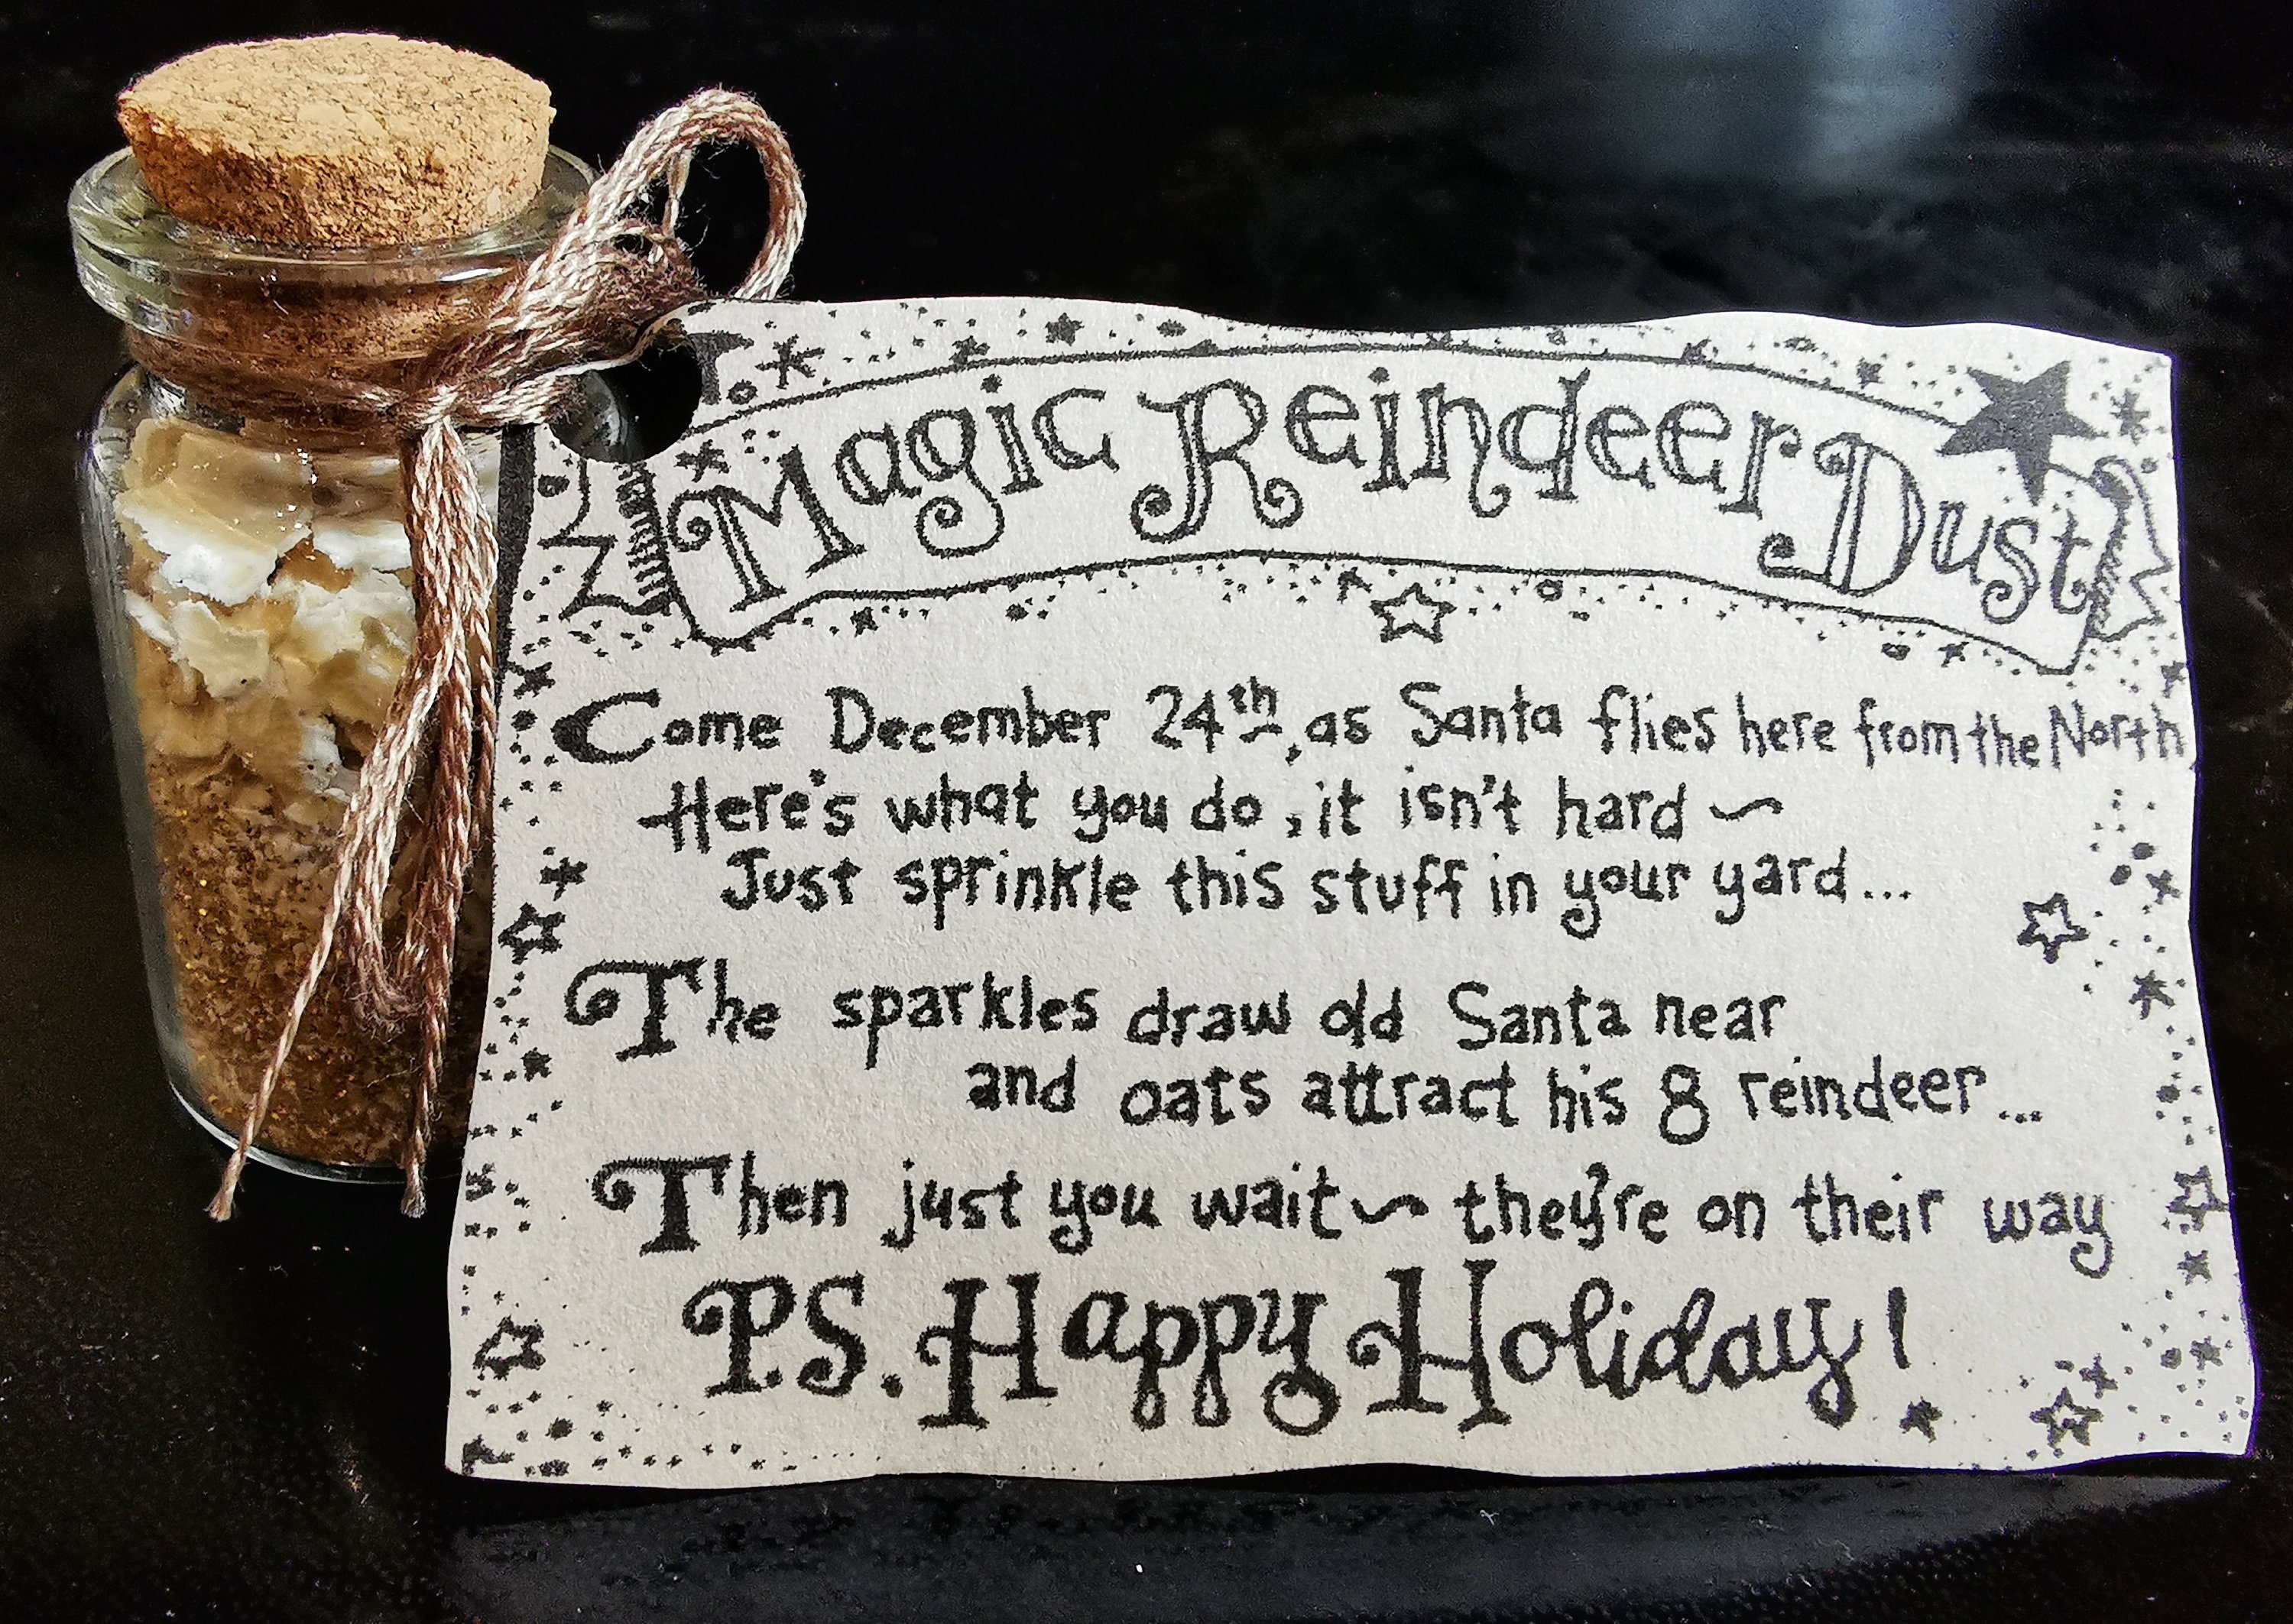 Magic Reindeer Dust
Come December 24th, as Santa flies here from the North,
Here's what you do, it isn't hard ~
Just sprinkle this stuff in your yard...
The sparkles draw old Santa near
and oats attract his 8 reindeer...
Then just you wait ~ they're on their way
P.S. Happy Holiday!